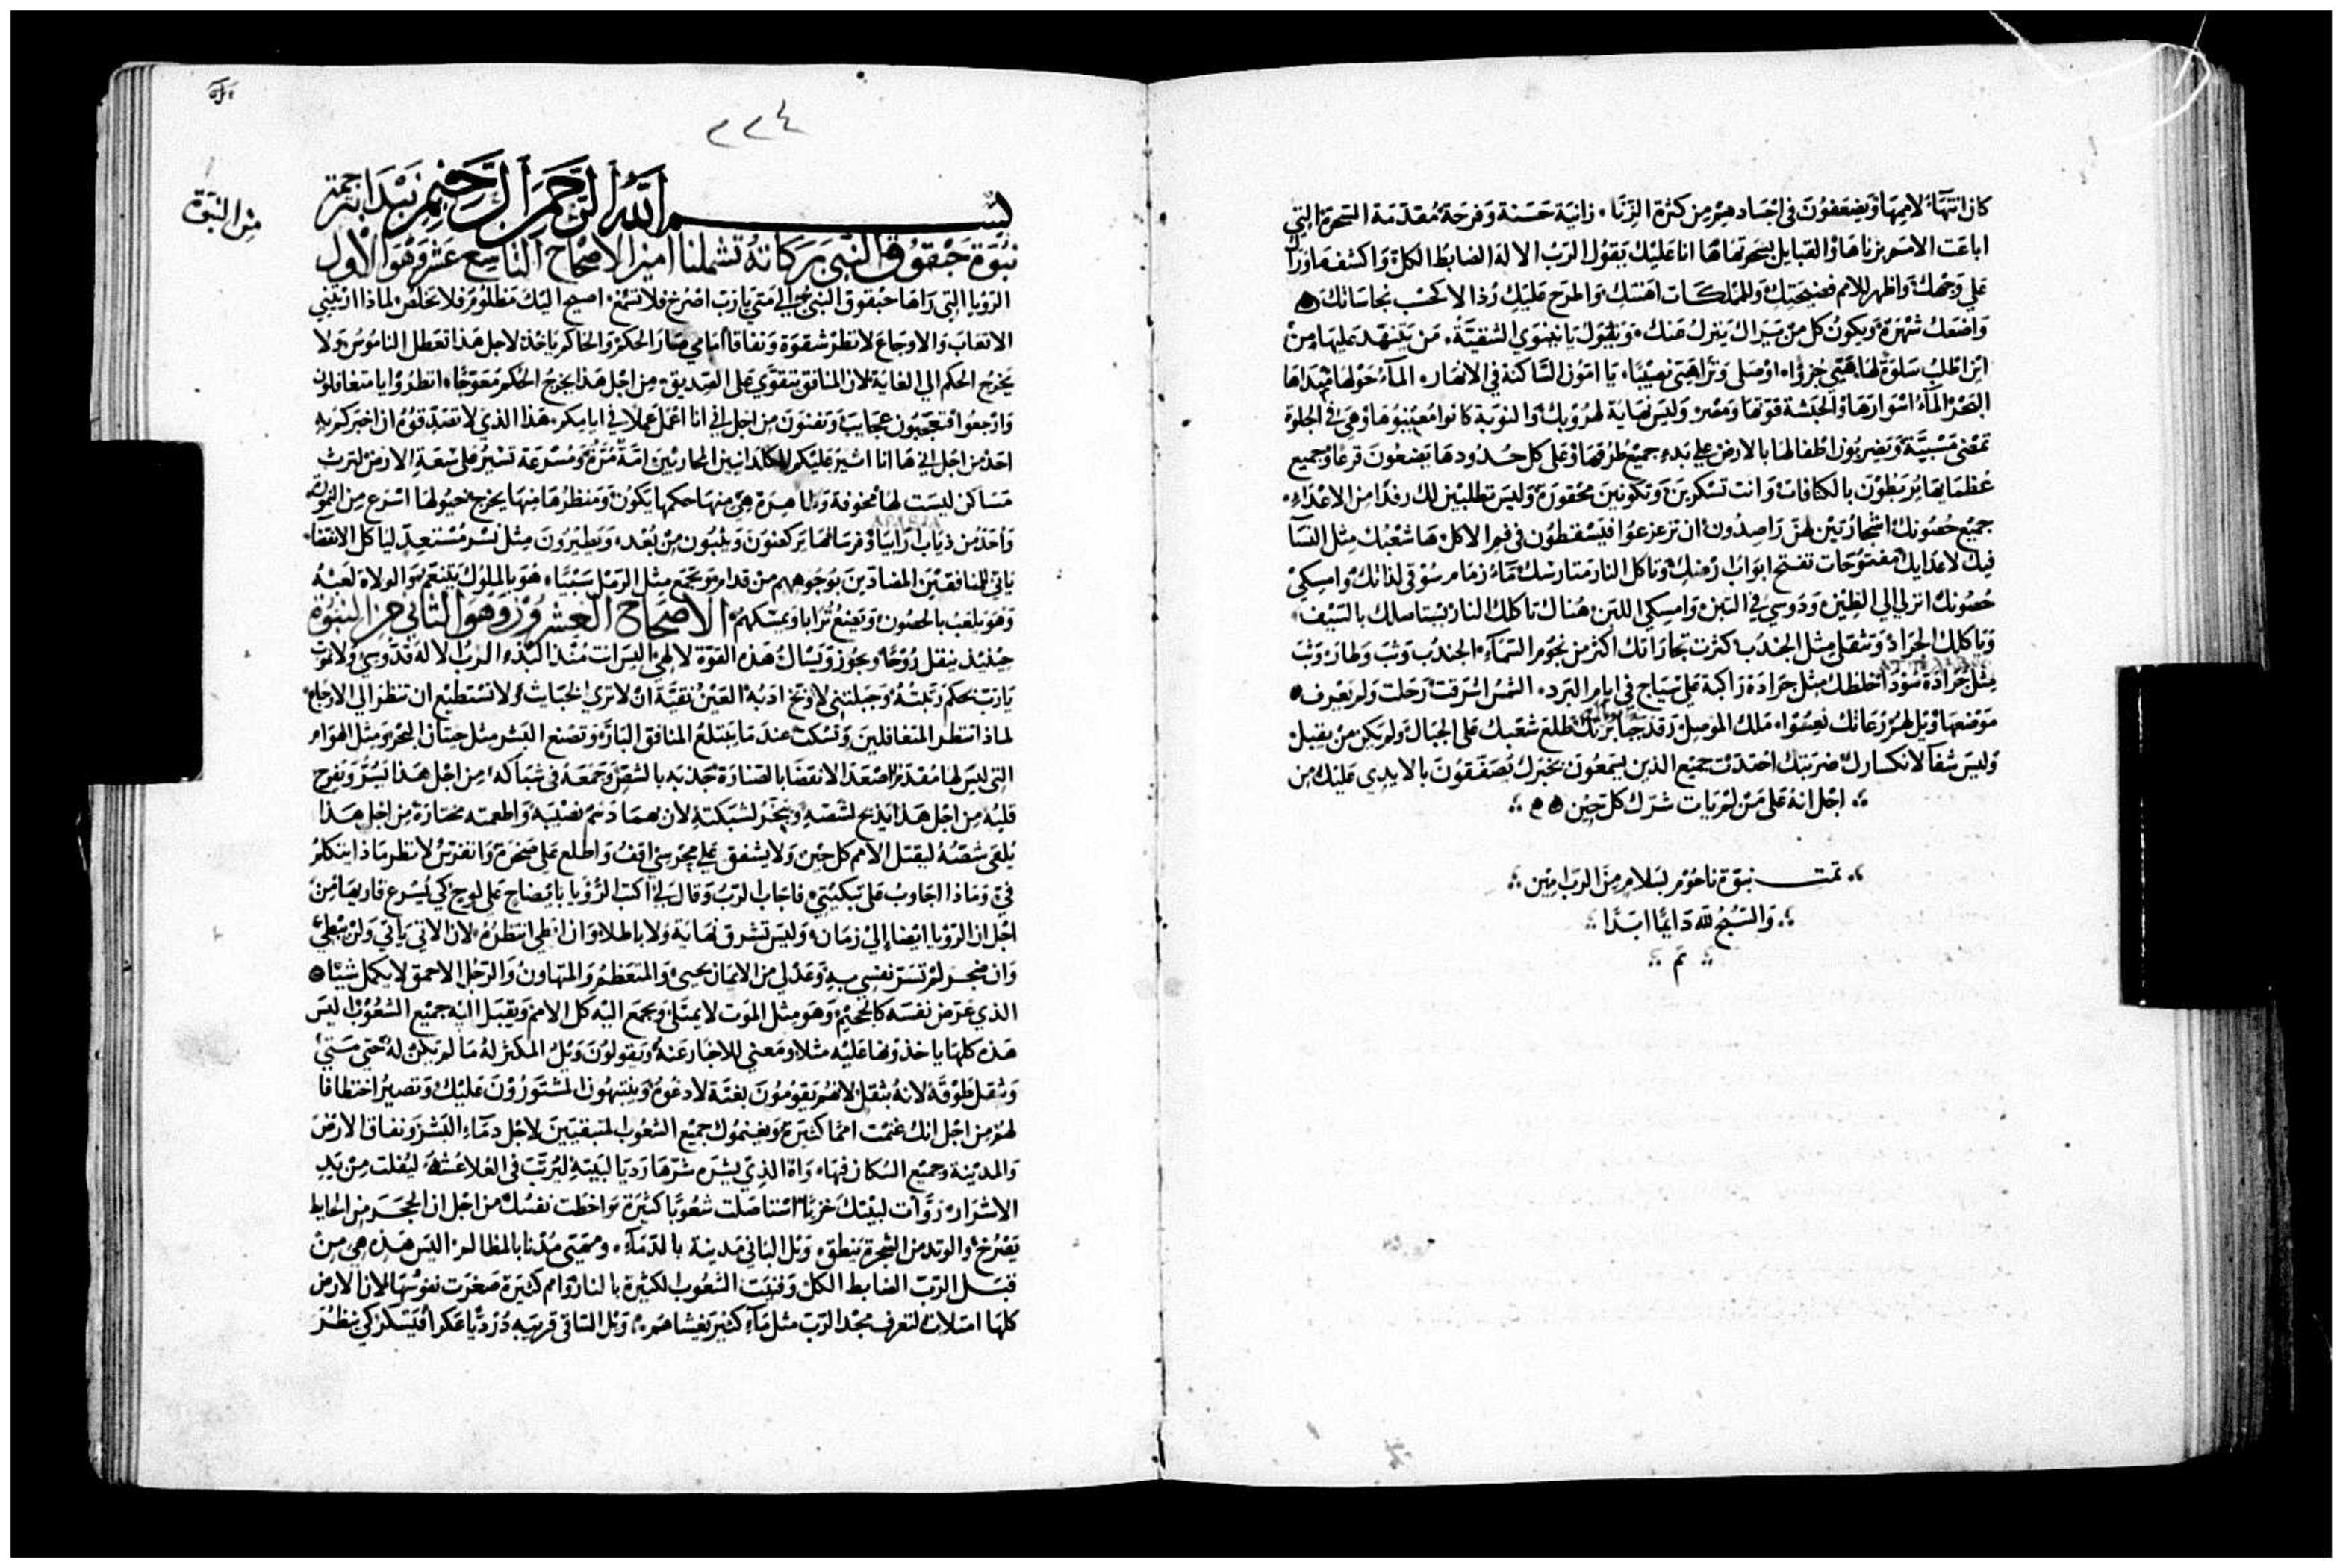 كان انتهاء لاممها ويضعفون فى اجسادهم من كثرة الزنا. زانية حسنة وفرحة مقدمة السحرة التي
اباعت الاسم بزناها والقبايل بسحرتها ها انا عليك يقول الرب الاله الضابط الكل واكشف ما وراك
على وجهك واظهر للامم فضيحتك وللمملكات اهنتك واطرح عليك رذالا كحسب نجاساتك
واضعك شهرة ويكون كل من يراك ينزل منك ويقول يا نينوي الشقية. من يتنهد عليها من
اين اطلب سلوة لها
البحر المآء اسوارها والحبشة قوتها ومصر وليس نهاية لهروبك والنوبة كانوا معينيوها وهى فى الجلوة
تمضى مسبية ويضربون اطفالها بالارض على بدء جميع طرقها وعلى كل حدودها يضعون قرعا وجميع
عظمايها يربطون بالكتافات وانت تسكرين وتكونين محقورة وليس تطلبين لك رفدا من الاعداء.
جميع حصونك اشجار تين لهن راصدون ان تزعزعوا فيسقطون فى فم الاكل ها شعبك مثل النسآ
فيك لاعدايك مفتوحات تفتح ابواب ارضك وتاكل النار متارسك ماء زمام سوقى لذاتك وامسكى
حصونك انزلي الى الطين ودوسي فى التبن وامسكي اللبن هناك تاكلك النار يستاصلك بالسيف
وياكلك الجراد وتثقل مثل الجندب كثرت تجاراتك اكثر من نجوم السماء الجندب وثب وطار وثب
مثل جرادة سودا خلطك مثل جرادة راكبة على سياج فى ايام البرد. الشمس اشرقت رحلت ولم يعرف
موضعها ويل لهم رعاتك نعسوا. ملك الموصل رقد جبابرتك طلع شعبك على الجبال ولم يكن من يقبل
وليس شفآ لانكسارك ضربتك احتدت جميع الذين يسمعون بخبرك يصفقون بالايدي عليك من
اجل انه على من لم يات شرك كل حين
تمت نبوة ناحوم بسلام من الرب امين
والتسبيح لله دايما ابدا
تم
٢٢٤
من النبوة
بسم الله الرحمن الرحيم نبتدا بترجمة
نبوة حبقوق النبى بركاته تشملنا امين الاصحاح التاسع عشر وهو الاول
الرؤيا التى راها حبقوق النبى الى متى يا رب اصرخ فلا تسمع اصيح اليك مظلوم فلا تخلص لماذا اريتني
الاتعاب والاوجاع لانظر شقوة ونفاقا امامي صار الحكم والحاكم ياخذ لاجل هذا تعطل الناموس ولا
يخرج الحكم الي الغاية لان المنافق يتقوي على الصديق من اجل هذا يخرج الحكم معوجا. انظروا يا متغافلون
وارجعوا فتعجبون عجايب وتفنون من اجل اني انا اعمل عملا فى ايامكم هذا الذي لا تصدقوه ان اخبركم به
احد من اجل اني ها انا اثير عليكم الكلدانيين المحاربين امة مرة ومسرعة تسير على سعة الارض لترث
مساكن ليست لها مخوفة وظاهرة هي منها حكمها يكون ومنظرها منها يخرج خيولها اسرع من النمورة
واحد من ذياب ارابيا وفرسانها يركضون ويثبون من بعد. ويطيرون مثل نسر مستعد لياكل الانقضا
ياتى للمنافقين المضادين بوجوههم من قدام ويجمع مثل الرمل سبيا. هو بالملوك يتنعم والولاة لعبه
وهو يلعب بالحصون ويضع ترابا ويمسكهم الاصحاح العشرون وهو الثانى من النبوة
حينيذ ينقل روحا ويجوز ويسال هذه القوة لالهي اليس انت منذ البدء الرب الاله قدوسي ولا نموت
يا رب بحكم رتبته وجبلتني لاوبخ ادبه العين نقية ان لا تري الخبايث ولا تستطيع ان تنظر الى الاوجاع
لماذا تنظر المتغافلين وتسكت عند ما يبتلع المنافق البار وتصنع البشر مثل حيتان البحر ومثل الهوام
التى ليس لها مقدم اصعد الانقضا بالصنارة جذبه بالشص وجمعه فى شباكه من اجل هذا يسر ويفرح
قلبه من اجل هذا يذبح لشصه ويبخر لشبكته لان بهما دسم نصيبه واطعمته مختارة من اجل هذا
يلقى شصه ليقتل الامم كل حين ولا يشفق على محرسي اقف واطلع على صخرة واتفرس لانظر ماذا يتكلم
في وماذا اجاوب على تبكيتي فاجاب الرب وقال لى اكتب الرؤيا بايضاح على لوح كي يسرع قاريها من
اجل ان الرؤيا ايضا الى زمان وليس تشرق نهاية ولا باطلا وان ابطى انتظره لان الاتى ياتي ولن يبطي
وان ضجر لم تسر نفسي به وعدلي من الايمان يحيى والمتعظم والمتهاون والرجل الاحمق لا يكمل شيا
الذي عرض نفسه كالجحيم وهو مثل الموت لا يمتلى ويجمع اليه كل الامم ويقبل اليه جميع الشعوب اليس
هذه كلها ياخذونها عليه مثلا ومعني للاخبار عنه ويقولون ويل المكثر له ما لم يكن له حتى متي
ويثقل طوقه لانه بثقل لانهم يقومون بغتة لادغوه وينتبهون المستورون عليك وتصير اختطافا
لهم من اجل انك غنمت امما كثيرة ويغنموك جميع الشعوب المتبقيين لاجل دماء البشر ونفاق الارض
والمدينة وجميع السكان فيها. واه الذي يشره شرها رديا لبيته ليرتب فى العلا عشه ليفلت من يد
الاشرار روات لبيتك خزيا استاصلت شعوبا كثيرة واخطت نفسك من اجل ان الحجر من الحايط
يصرخ والوتد من الشجرة ينطق. ويل الباني مدينة بالدماء. ومهيى مدنا بالمظالم اليس هذه هي من
قبل الرب الضابط الكل وفنيت الشعوب الكثيرة بالنار وامم كثيرة صغرت نفوسها لان الارض
كلها امتلات لتعرف مجد الرب مثل ماء كثير يغشاهم. ويل الساقى قريبه درديا عكرا فيسكر كي ينظر